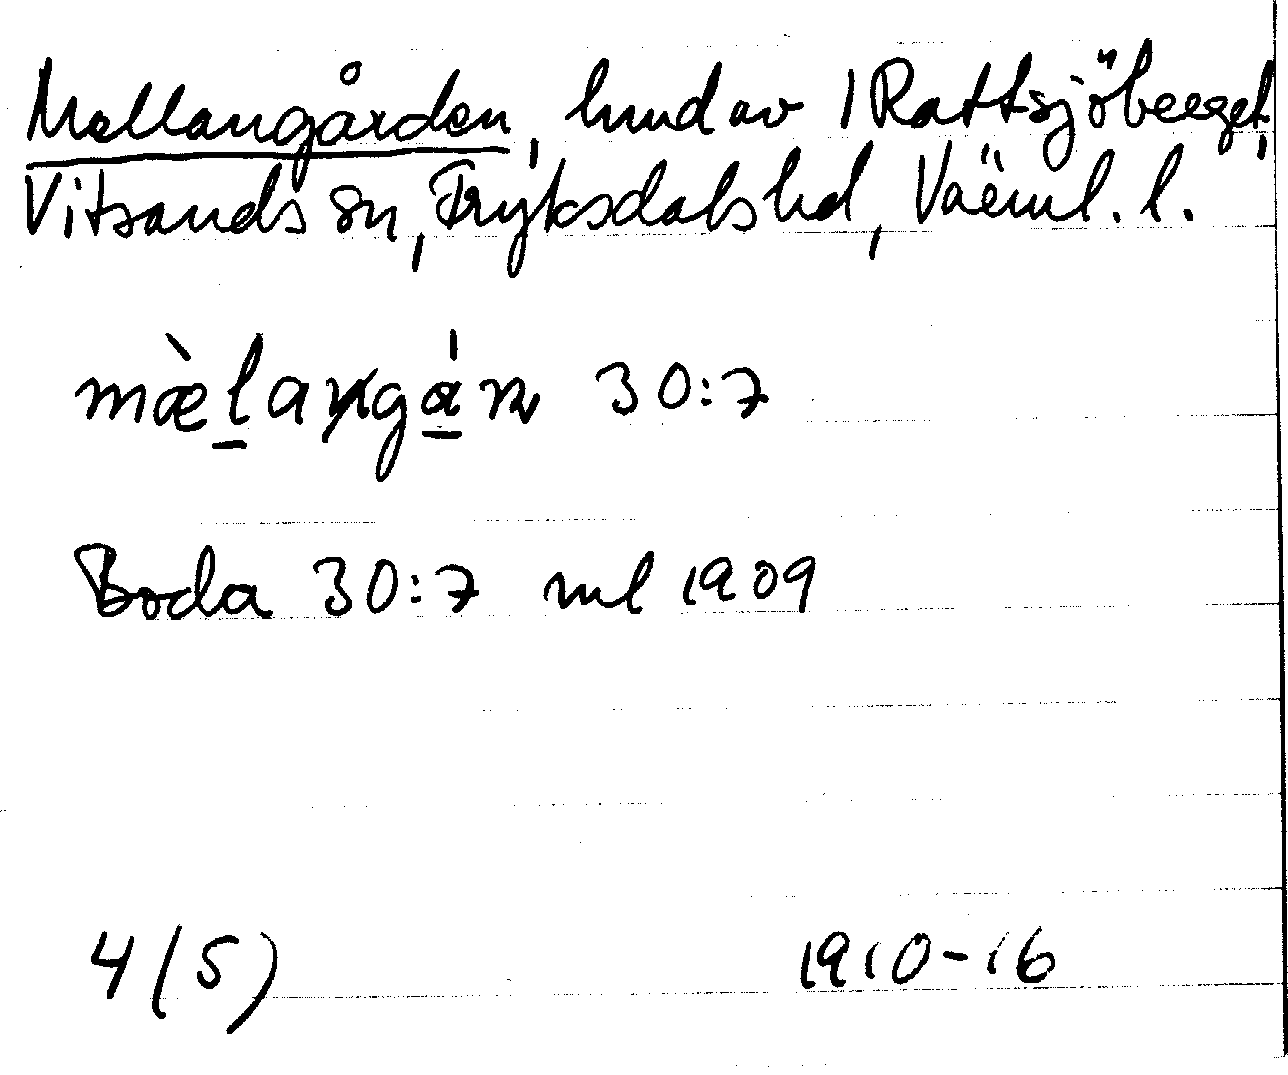 Mellangården, hmd av 1 Rattsjöberget,
Vitsands sn, Fryksdals hd, Värml. l.
mæ̀l̲aŋgá̲n 30:7
Boda 30:7 ml 1909
4(5) 1910-16